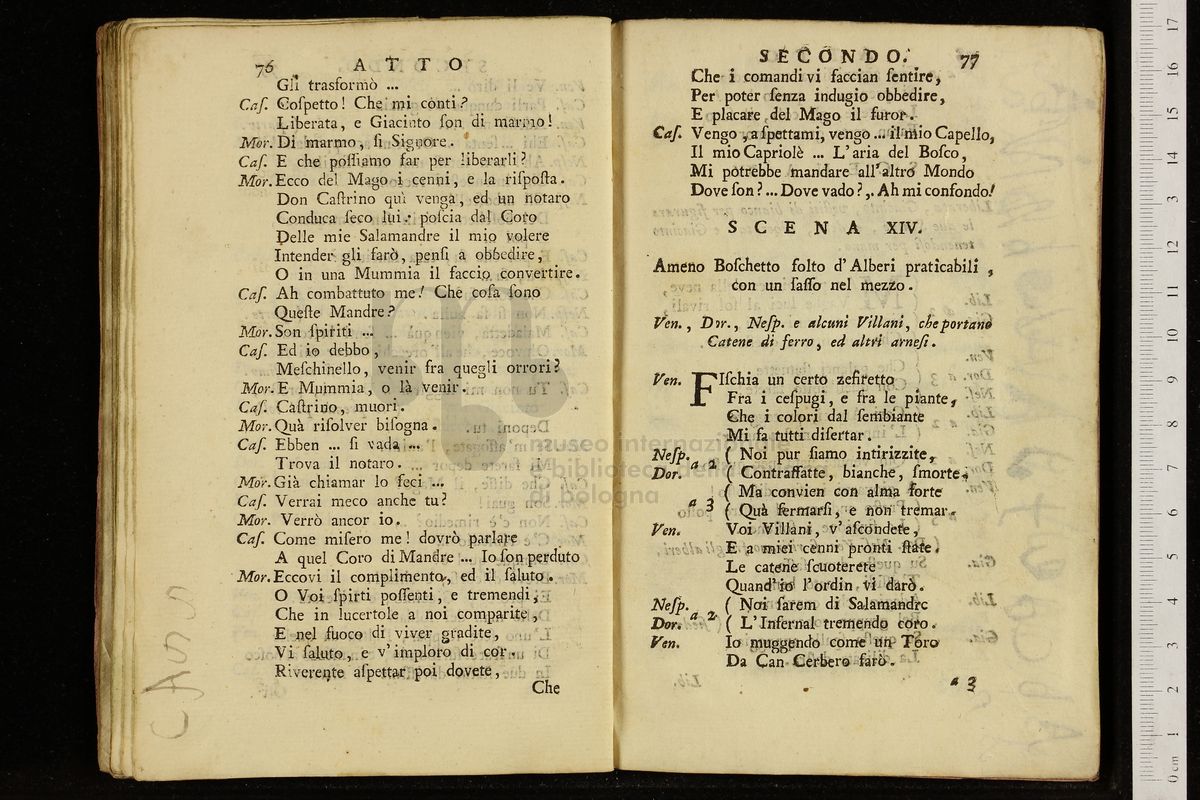 76 ATTO
Gli trasformò ...
Caſ. Coſpetto! Che mi conti?
Liberata, e Giacinto ſon di marmo!
Mor. Di marmo, ſi Signore.
Caſ. E che poſſiamo far per liberarli?
Mor. Ecco del Mago i cenni, e la riſpoſta.
Don Caſtrino quì venga, ed un notaro
Conduca ſeco lui: poſcia dal Coro
Delle mie Salamandre il mio volere
Intender gli farò, penſi a obbedire,
O in una Mummia il faccio convertire.
Caſ. Ah combattuto me! Che coſa ſono
Queſte Mandre?
Mor. Son ſpiriti ...
Caſ. Ed io debbo,
Meſchinello, venir fra quegli orrori?
Mor. E Mummia, o là venir.
Caſ. Caſtrino, muori.
Mor. Quà riſolver biſogna.
Caſ. Ebben ... ſi vada ...
Trova il notaro.
Mor. Già chiamar lo feci ...
Caſ. Verrai meco anche tu?
Mor. Verrò ancor io.
Caſ. Come miſero me! dovrò parlare
A quel Coro di Mandre ... Io ſon perduto
Mor. Eccovi il complimento, ed il ſaluto.
O Voi ſpirti poſſenti, e tremendi,
Che in lucertole a noi comparite,
E nel fuoco di viver gradite,
Vi ſaluto, e v'imploro di cor.
Riverente aſpettar poi dovete,
Che
SECONDO. 77
Che i comandi vi faccian ſentire,
Per poter ſenza indugio obbedire,
E placare del Mago il furor.
Caſ. Vengo, aſpettami, vengo ... il mio Capello,
Il mio Capriolè ... L'aria del Boſco,
Mi potrebbe mandare all'altro Mondo
Dove ſon? ... Dove vado?,. Ah mi confondo!
SCENA XIV.
Ameno Boſchetto folto d'Alberi praticabili,
con un ſaſſo nel mezzo.
Ven., Dor., Neſp. e alcuni Villani, che portano
Catene di ferro, ed altri arneſi.
Ven. FIſchia un certo zefiretto
Fra i ceſpugi, e fra le piante,
Che i colori dal ſembiante
Mi fa tutti diſertar.
Neſp. ( Noi pur ſiamo intirizzite,
Dor. a 2 ( Contraffatte, bianche, ſmorte,
( Ma convien con alma forte
a 3 ( Quà fermarſi, e non tremar.
Ven. Voi Villani, v'aſcondete,
E a miei cenni pronti ſtate.
Le catene ſcuoterete
Quand'io l'ordin vi darò.
Neſp. ( Noi ſarem di Salamandre
Dor. a 2 ( L'Infernal tremendo coro.
Ven. Io muggendo come un Toro
Da Can Cerbero farò.
a 3
museo internazionale
e biblioteca della
di bologna